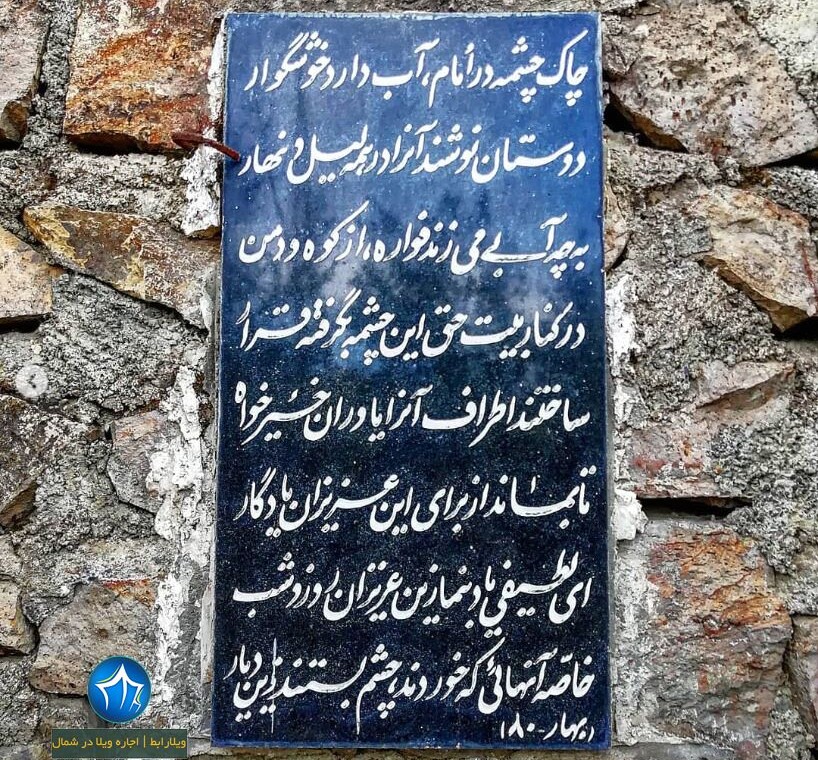 چاک چشمه در اُمام، آب دارد خوشگوار
دوستان نوشند آنرا در همه لیل و نهار
به چه آبی می زند فواره، از کوه و دمن
در کنار بیت حق این چشمه بگرفته قرار
ساختند اطراف آنرا یاوران خیرخواه
تا بماند از برای این عزیزان یادگار
ای لطیفی یاد بنما زین عزیزان روز و شب
خاصّه آنهائی که خوردند، چشم بستند از این دیار
(بهار-۸۰)
ویلارابط | اجاره ویلا در شمال